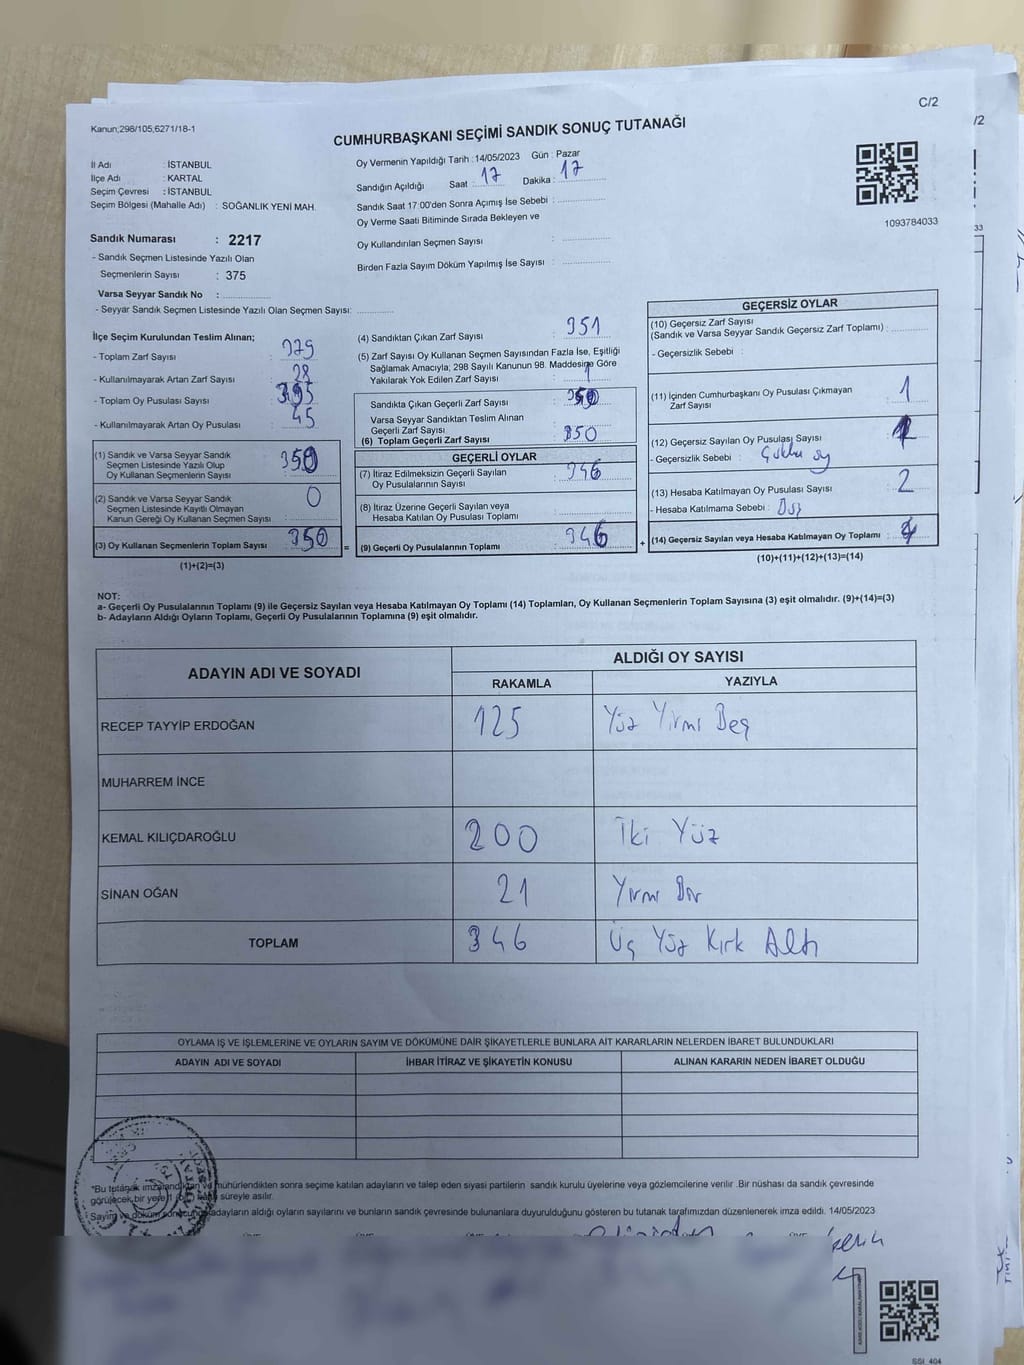 C/2
Kanun;298/105,6271/18-1
CUMHURBAŞKANI SEÇİMİ SANDIK SONUÇ TUTANAĞI
İl Adı : İSTANBUL
İlçe Adı : KARTAL
Seçim Çevresi : İSTANBUL
Seçim Bölgesi (Mahalle Adı) : SOĞANLIK YENİ MAH.
Sandık Numarası : 2217
- Sandık Seçmen Listesinde Yazılı Olan
Seçmenlerin Sayısı : 375
Varsa Seyyar Sandık No :
- Seyyar Sandık Seçmen Listesinde Yazılı Olan Seçmen Sayısı:
Oy Vermenin Yapıldığı Tarih : 14/05/2023 Gün : Pazar
Sandığın Açıldığı Saat 17 Dakika : 17
Sandık Saat 17:00'den Sonra Açımış İse Sebebi :
Oy Verme Saati Bitiminde Sırada Bekleyen ve
Oy Kullandırılan Seçmen Sayısı :
Birden Fazla Sayım Döküm Yapılmış İse Sayısı :
1093784033
İlçe Seçim Kurulundan Teslim Alınan;
- Toplam Zarf Sayısı : 379
- Kullanılmayarak Artan Zarf Sayısı : 28
- Toplam Oy Pusulası Sayısı : 395
- Kullanılmayarak Artan Oy Pusulası : 45
(1) Sandık ve Varsa Seyyar Sandık
Seçmen Listesinde Yazılı Olup
Oy Kullanan Seçmenlerin Sayısı : 350
(2) Sandık ve Varsa Seyyar Sandık
Seçmen Listesinde Kayıtlı Olmayan
Kanun Gereği Oy Kullanan Seçmen Sayısı : 0
(3) Oy Kullanan Seçmenlerin Toplam Sayısı : 350
(1)+(2)=(3)
(4) Sandıktan Çıkan Zarf Sayısı : 351
(5) Zarf Sayısı Oy Kullanan Seçmen Sayısından Fazla İse, Eşitliği
Sağlamak Amacıyla, 298 Sayılı Kanunun 98. Maddesine Göre
Yakılarak Yok Edilen Zarf Sayısı : 1
Sandıkta Çıkan Geçerli Zarf Sayısı : 350
Varsa Seyyar Sandıktan Teslim Alınan
Geçerli Zarf Sayısı :
(6) Toplam Geçerli Zarf Sayısı : 350
GEÇERLİ OYLAR
(7) İtiraz Edilmeksizin Geçerli Sayılan
Oy Pusulalarının Sayısı : 346
(8) İtiraz Üzerine Geçerli Sayılan veya
Hesaba Katılan Oy Pusulası Toplamı :
= (9) Geçerli Oy Pusulalarının Toplamı : 346 +
GEÇERSİZ OYLAR
(10) Geçersiz Zarf Sayısı
(Sandık ve Varsa Seyyar Sandık Geçersiz Zarf Toplamı) :
- Geçersizlik Sebebi :
(11) İçinden Cumhurbaşkanı Oy Pusulası Çıkmayan
Zarf Sayısı : 1
(12) Geçersiz Sayılan Oy Pusulası Sayısı : 1
- Geçersizlik Sebebi :
(13) Hesaba Katılmayan Oy Pusulası Sayısı : 2
- Hesaba Katılmama Sebebi :
(14) Geçersiz Sayılan veya Hesaba Katılmayan Oy Toplamı : 4
(10)+(11)+(12)+(13)=(14)
NOT:
a- Geçerli Oy Pusulalarının Toplamı (9) ile Geçersiz Sayılan veya Hesaba Katılmayan Oy Toplamı (14) Toplamları, Oy Kullanan Seçmenlerin Toplam Sayısına (3) eşit olmalıdır. (9)+(14)=(3)
b- Adayların Aldığı Oyların Toplamı, Geçerli Oy Pusulalarının Toplamına (9) eşit olmalıdır.
ADAYIN ADI VE SOYADI ALDIĞI OY SAYISI
RAKAMLA YAZIYLA
RECEP TAYYİP ERDOĞAN 125 Yüz Yirmi Beş
MUHARREM İNCE
KEMAL KILIÇDAROĞLU 200 İki Yüz
SİNAN OĞAN 21 Yirmi Bir
TOPLAM 346 Üç Yüz Kırk Altı
OYLAMA İŞ VE İŞLEMLERİNE VE OYLARIN SAYIM VE DÖKÜMÜNE DAİR ŞİKAYETLERLE BUNLARA AİT KARARLARIN NELERDEN İBARET BULUNDUKLARI
ADAYIN ADI VE SOYADI İHBAR İTİRAZ VE ŞİKAYETİN KONUSU ALINAN KARARIN NEDEN İBARET OLDUĞU
"Bu tutanak mühürlendikten sonra seçime katılan adayların ve talep eden siyasi partilerin sandık kurulu üyelerine veya gözlemcilerine verilir .Bir nüshası da sandık çevresinde
görülecek bir yere süreyle asılır.
Sayım ve döküm adayların aldığı oyların sayılarını ve bunların sandık çevresinde bulunanlara duyurulduğunu gösteren bu tutanak tarafımızdan düzenlenerek imza edildi. 14/05/2023
SSI 404